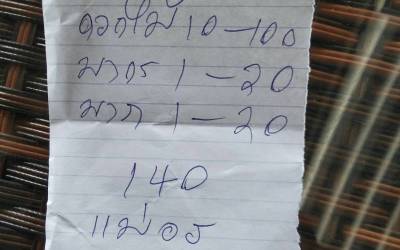 ดอกไม้ 10 - 100
มาดร 1 - 20
มาภ 1 - 20
140
แม่อร